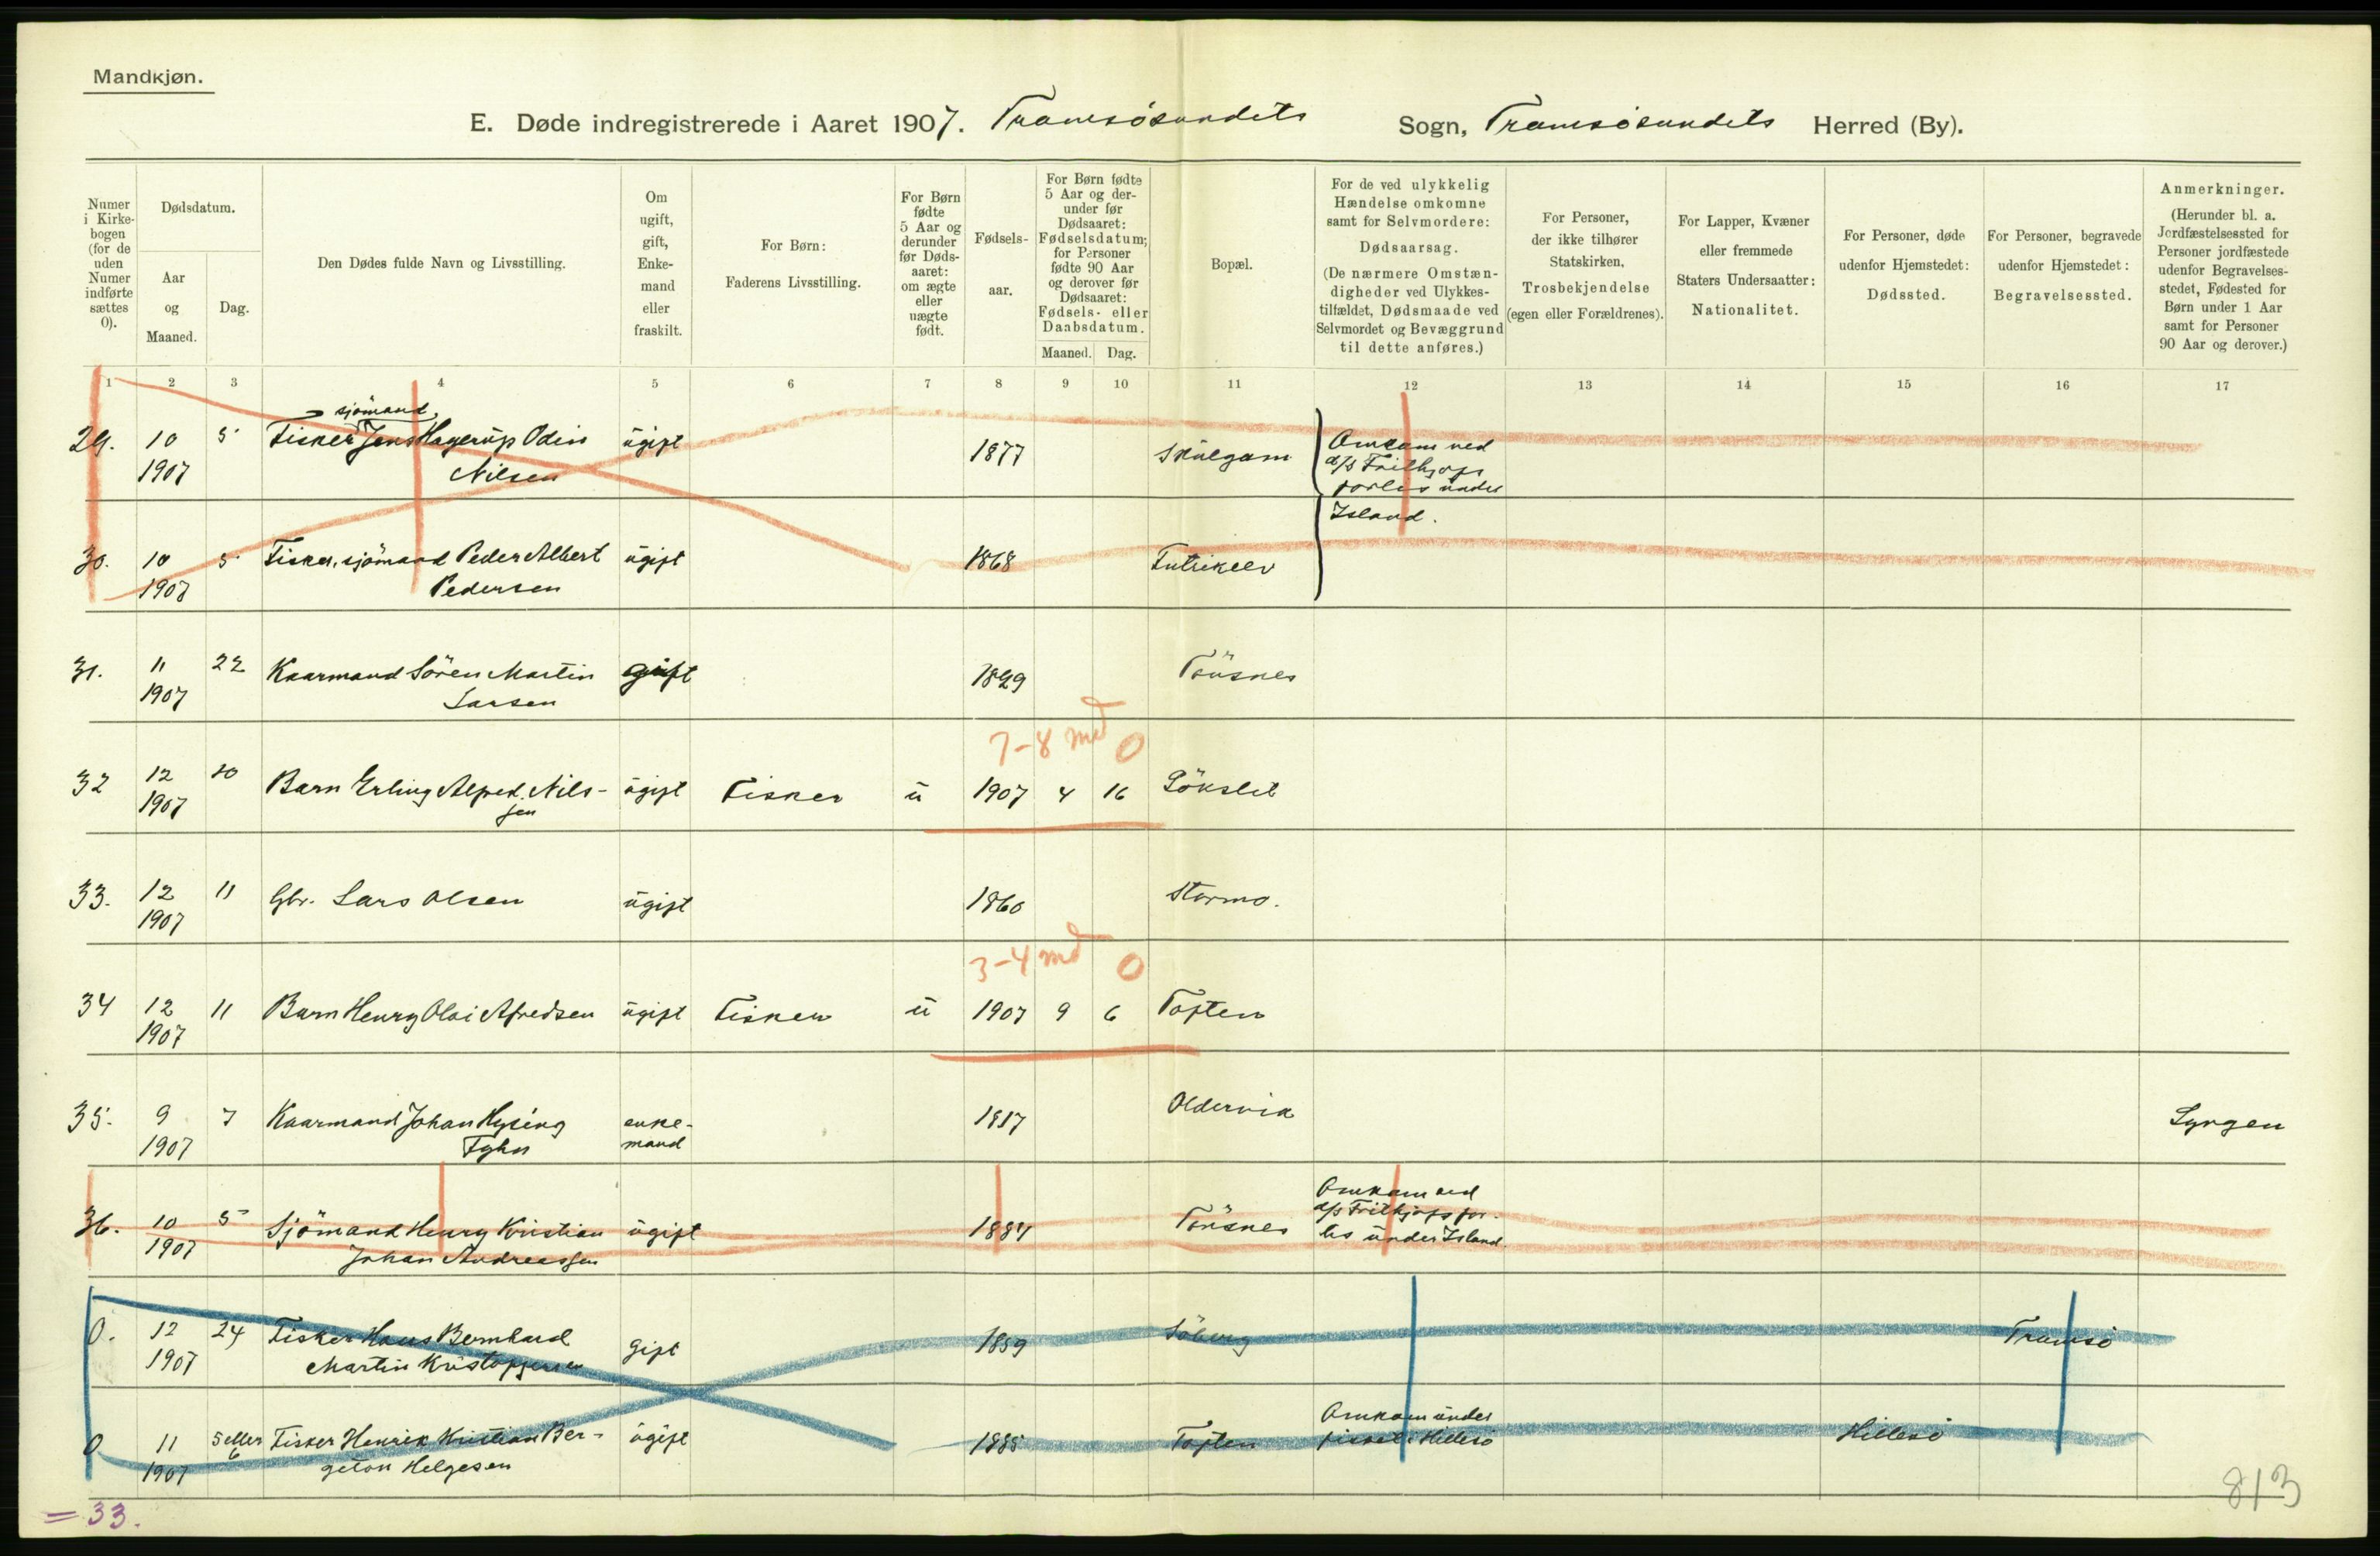 Mandkjøn.
E. Døde indregistrerede i Aaret 1907. Tromsøsundets Sogn, Tromsøsundets Herred (By).
Numer i Kirkebogen (for de uden Numer indførte sættes 0).
Dødsdatum.
Aar og Maaned.
Dag.
Den Dødes fulde Navn og Livsstilling.
Om ugift, gift, Enkemand eller fraskilt.
For Børn: Faderens Livsstilling.
For Børn fødte 5 Aar og derunder før Dødsaaret: om ægte eller uægte født.
Fødselsaar.
For Børn fødte 5 Aar og derunder før Dødsaaret: Fødselsdatum; for Personer fødte 90 Aar og derover før Dødsaaret: Fødsels- eller Daabsdatum.
Maaned. Dag.
Bopæl.
For de ved ulykkelig Hændelse omkomne samt for Selvmordere: Dødsaarsag. (De nærmere Omstændigheder ved Ulykkestilfældet, Dødsmaade ved Selvmordet og Bevæggrund til dette anføres.)
For Personer, der ikke tilhører Statskirken, Trosbekjendelse (egen eller Forældrenes).
For Lapper, Kvæner eller fremmede Staters Undersaatter: Nationalitet.
For Personer, døde udenfor Hjemstedet: Dødssted.
For Personer, begravede udenfor Hjemstedet: Begravelsessted.
Anmerkninger. (Herunder bl. a. Jordfæstelsessted for Personer jordfæstede udenfor Begravelsesstedet, Fødested for Børn under 1 Aar samt for Personer 90 Aar og derover.)
1 2 3 4 5 6 7 8 9 10 11 12 13 14 15 16 17
sjömand,
29. 10 5 Fisker Jens Hagerup Odin ugift 1877 Skulgam Omkom ved
1907 Nilsen d/s Frithjofs
forlis under
Island.
30. 10 5 Fisker, sjömand Peder Albert ugift 1868 Futrikelv
1907 Pedersen
31. 11 22 Kaarmand Sören Martin gift 1829 Tönsnes
1907 Larsen
7-8 md 0
32 12 10 Barn Erling Alfred Nils- ugift Fisker u 1907 4 16
1907 sen
33. 12 11 Gbr. Lars Olsen ugift 1860 Stormo.
1907
3-4 md 0
34 12 11 Barn Henry Olai Alfredsen ugift Fisker u 1907 9 6 Toften
1907
35. 9 7 Kaarmand Johan Hysing enke- 1817 Oldervik Lyngen
1907 mand
36. 10 5 Sjömand Henry Kristian ugift 1884 Tönsnes Omkom ved
1907 Johan Andreassen d/s Frithjofs for-
lis under Island.
0. 12 24 Fisker Hans Bernhard gift 1859 Tromsö
1907 Martin Kristoffersen
0 11 5 eller 6 Fisker Henrik Kristian Ber- ugift 1885 Toften Omkom under
1907 geton Helgesen fiske i Hillesö Hillesö
= 33.
813